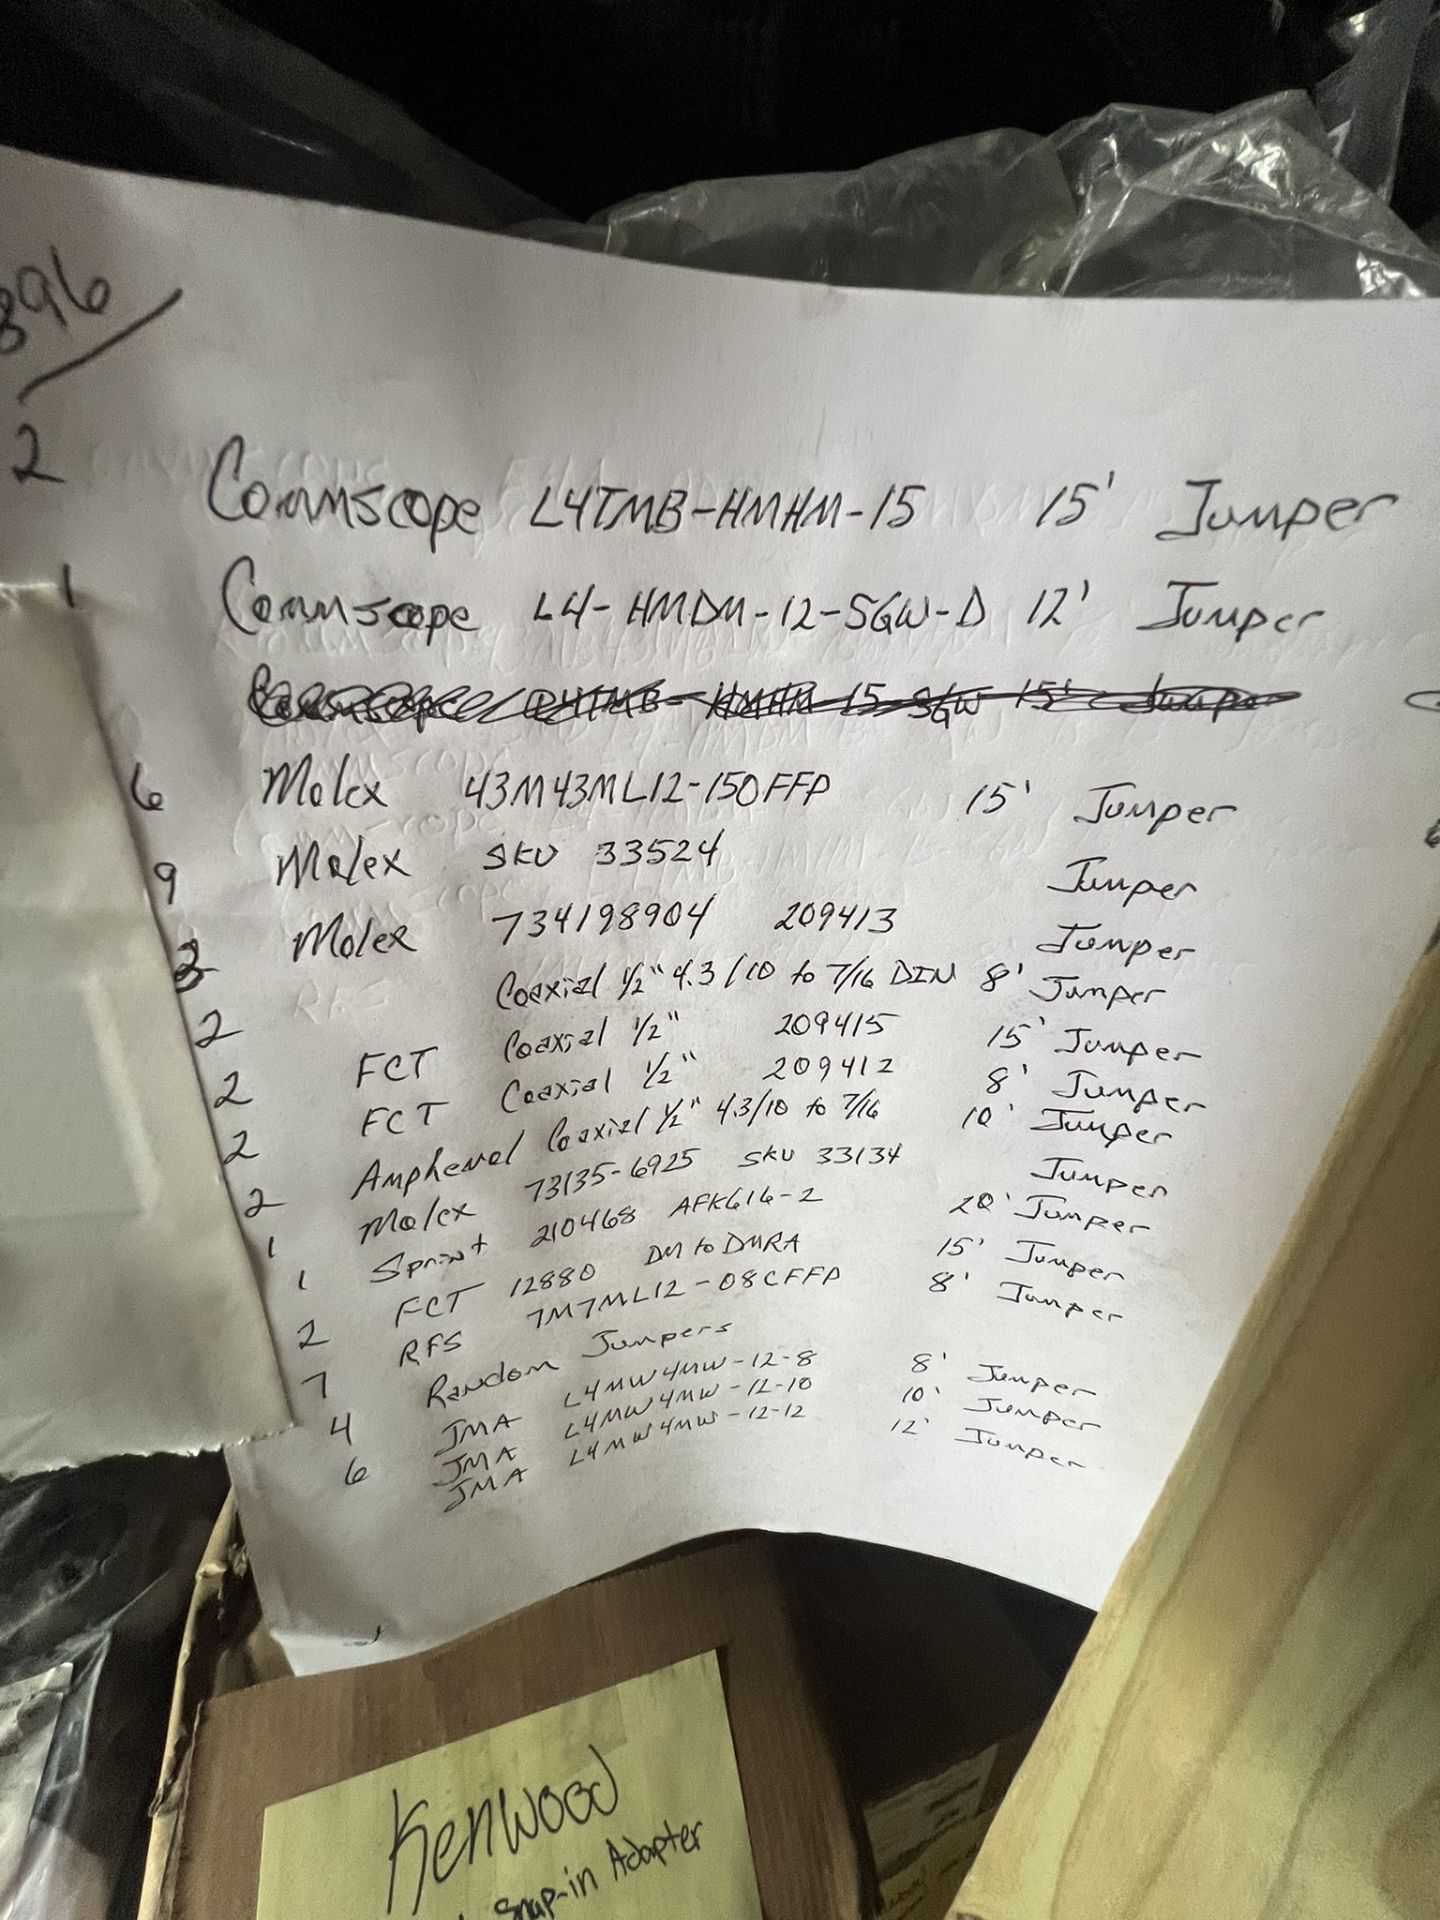 896
2 Commscope L4TMB-HMHM-15 15' Jumper
1 Commscope L4-HMDM-12-SGW-D 12' Jumper
Commscope L4TMB-HMHM-15-SGW 15' Jumper
6 Molex 43M43ML12-150FFP 15' Jumper
9 Molex SKU 33524 Jumper
Molex 734198904 209413 Jumper
2 Coaxial 1/2" 4.3/10 to 7/16 DIN 8' Jumper
2 FCT Coaxial 1/2" 209415 15' Jumper
2 FCT Coaxial 1/2" 209412 8' Jumper
2 Amphenol Coaxial 1/2" 4.3/10 to 7/16 10' Jumper
1 Molex 73135-6925 SKU 33134 Jumper
1 Sprint 210468 AFK616-2 20' Jumper
2 FCT 12880 DM to DMRA 15' Jumper
7 RFS 7M7ML12-08CFFP 8' Jumper
4 Random Jumpers
6 JMA L4MW4MW-12-8 8' Jumper
JMA L4MW4MW-12-10 10' Jumper
JMA L4MW4MW-12-12 12' Jumper
Kenwood
Snap-in Adapter